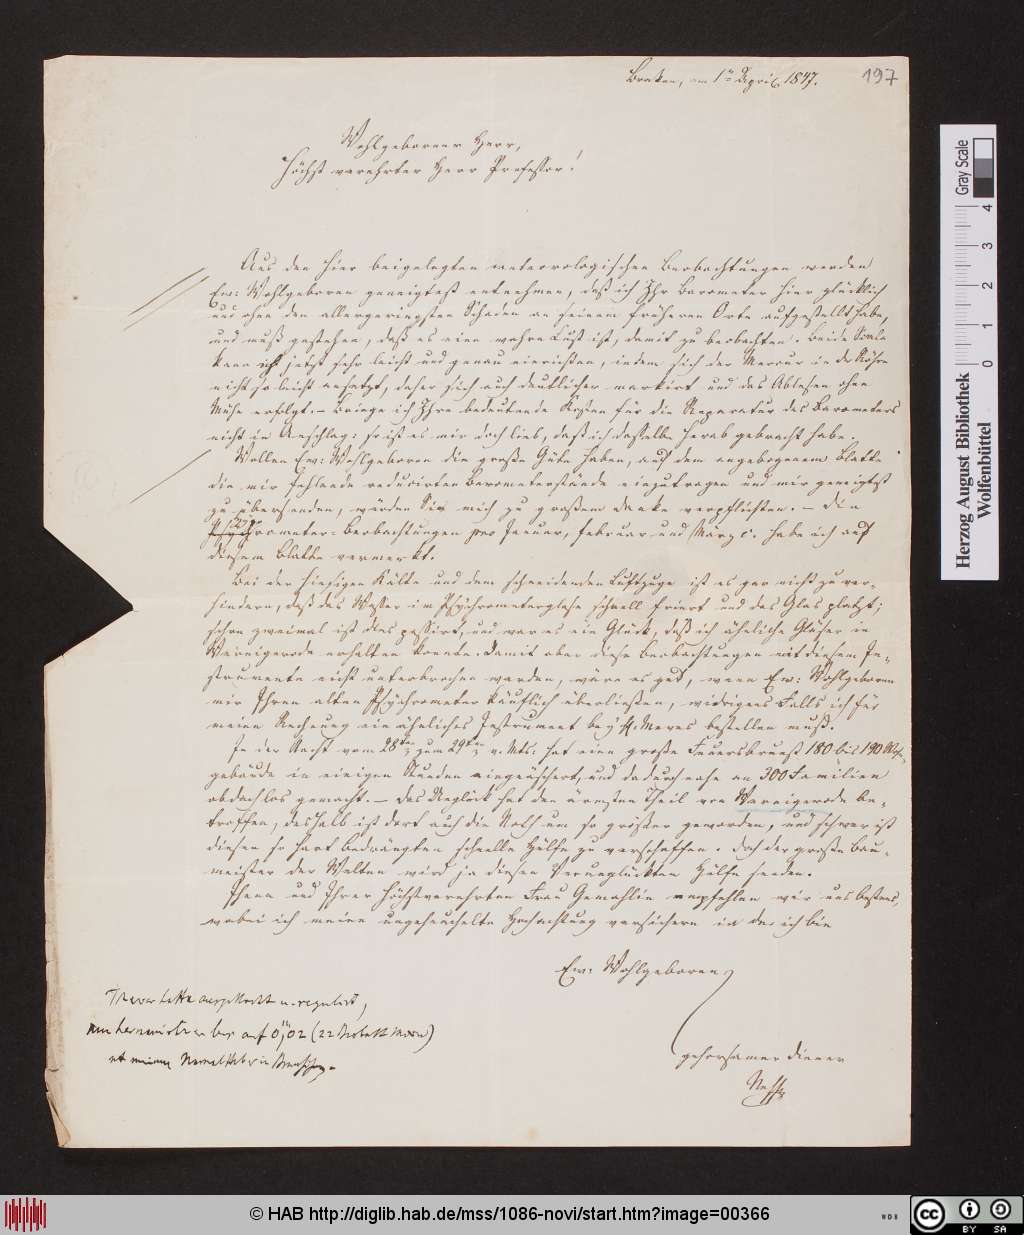 Brocken, am 1ten April 1847.
197
Wohlgeborner Herr,
Höchst verehrter Herr Professor!
Aus den hier beigelegten meteorologischen Beobachtungen werden
Ew: Wohlgeboren geneigtest entnehmen, daß ich Ihr Barometer hier glücklich
und ohne den allergeringsten Schaden an seinem früheren Orte aufgestellt habe,
und muß gestehen, daß es eine wahre Lust ist, damit zu beobachten. Beide Scala
kann ich jetzt sehr leicht und genau einrichten, indem sich der Mercur in der Röhre
nicht so leicht ansetzt, daher sich auch deutlicher markirt und das Ablesen ohne
Mühe erfolgt. – Bringe ich Ihre bedeutende Kosten für die Reparatur des Barometers
nicht in Anschlag: so ist es mir doch lieb, daß ich dasselbe herab gebracht habe.
Wollen Ew: Wohlgeboren die große Güte haben, auf dem angebogenem Blatte
die mir fehlende reducirten Barometerstände einzutragen und mir geneigtest
zu übersenden, würden Sie mich zu großem Danke verpflichten. – Die
Psychrometer-Beobachtungen pro Januar, Februar und März c. habe ich auf
diesem Blatte vermerkt.
Bei der hiesigen Kälte und dem schneidenden Luftzuge ist es gar nicht zu ver-
hindern, daß das Wasser im Psychrometerglase schnell friert und das Glas platzt;
schon zweimal ist dies passirt, und war es ein Glück, daß ich ähnliche Gläser in
Wernigerode erhalten konnte. Damit aber diese Beobachtungen mit diesem In-
strumente nicht unterbrochen werden, wäre es gut, wenn Ew: Wohlgeboren
mir Ihren alten Psychrometer käuflich überließen, widrigens Falls ich für
meine Rechnung ein ähnliches Instrument bey H. Meves bestellen muß.
In der Nacht vom 28ten zum 29ten v. Mts: hat eine große Feuersbrunst 180 bis 190
gebäude in einigen Stunden eingeäschert, und dadurch nahe an 300 Familien
obdachlos gemacht. – Das Unglück hat den ärmsten Theil von Wernigerode be-
troffen, deshalb ist dort auch die Noth um so größer geworden, und schwer ist
diesen so hart bedrängten schnelle Hülfe zu verschaffen. Doch der große Bau-
meister der Welten wird ja diesen Verunglückten Hülfe senden.
Ihnen und Ihrer höchstverehrten Frau Gemahlin empfehlen wir uns bestens,
wobei ich meine ungeheuchelte Hochachtung versichere in der ich bin
Ew: Wohlgeboren
gehorsamer Diener
Nehse
auf 0,"02 (
Gray Scale
0 1 2 3 4
Herzog August Bibliothek
Wolfenbüttel
© HAB http://diglib.hab.de/mss/1086-novi/start.htm?image=00366
WDB
CC BY SA